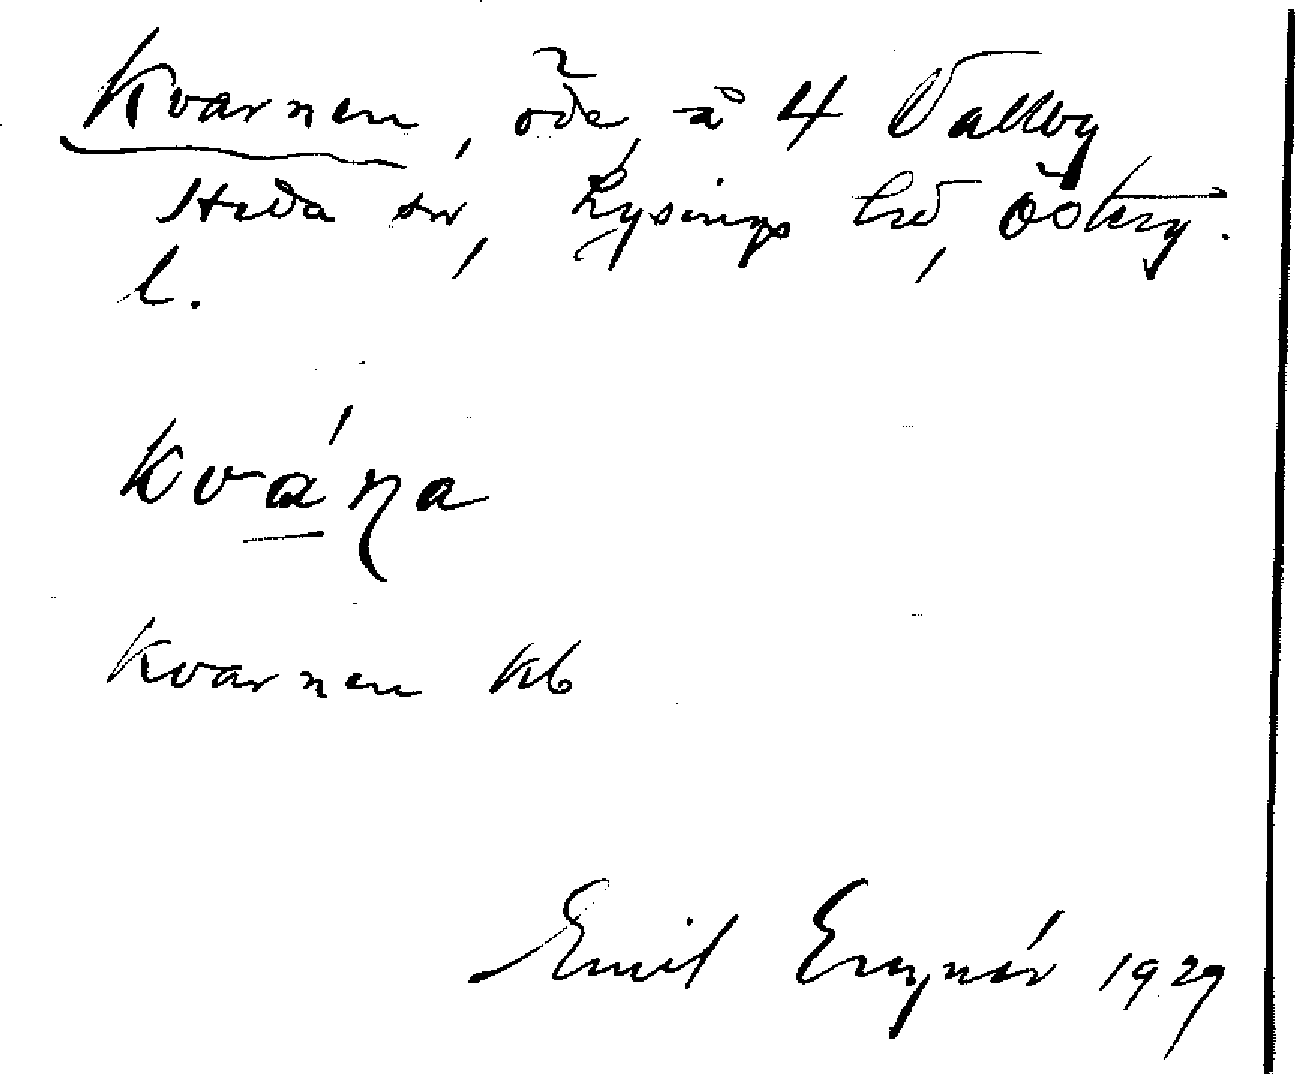 Kvarnen, öde, å 4 Valby
Heda sn, Lysings hd, Österg.
l.
Kváꞃa
Kvarnen kb
Emil 1929